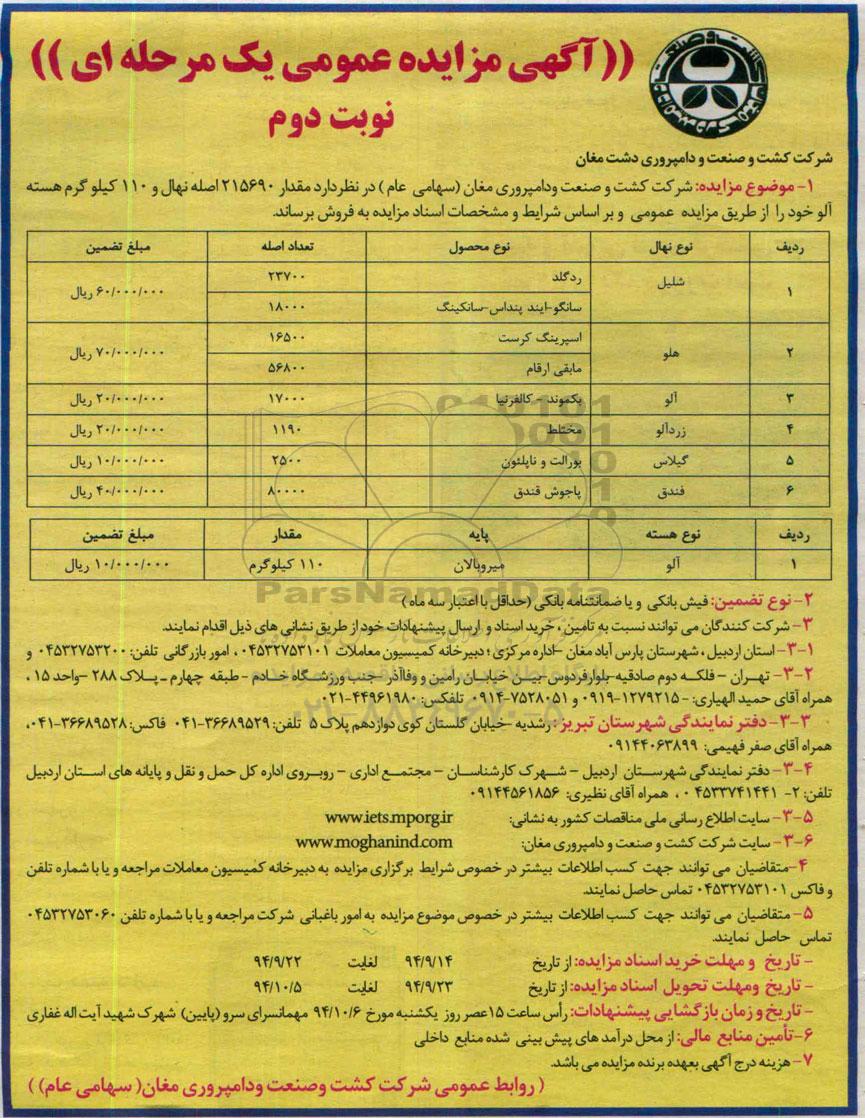 ((آگهی مزایده عمومی یک مرحله ای))
نوبت دوم
شرکت کشت و صنعت و دامپروری دشت مغان
۱- موضوع مزایده: شرکت کشت و صنعت ودامپروری مغان (سهامی عام) در نظر دارد مقدار ۲۱۵۶۹۰ اصله نهال و ۱۱۰ کیلو گرم هسته
آلو خود را از طریق مزایده عمومی و بر اساس شرایط و مشخصات اسناد مزایده به فروش برساند.
ردیف نوع نهال نوع محصول تعداد اصله مبلغ تضمین
۱ شلیل ردگلد ۲۳۷۰۰ ۶۰/۰۰۰/۰۰۰ ریال
سانگو-ایند پنداس-سانکینگ ۱۸۰۰۰
۲ هلو اسپرینگ کرست ۱۶۵۰۰ ۷۰/۰۰۰/۰۰۰ ریال
مابقی ارقام ۵۶۸۰۰
۳ آلو بکموند - کالفرنیا ۱۷۰۰۰ ۲۰/۰۰۰/۰۰۰ ریال
۴ زردآلو مختلط ۱۱۹۰ ۲۰/۰۰۰/۰۰۰ ریال
۵ گیلاس بورالت و ناپلئون ۲۵۰۰ ۱۰/۰۰۰/۰۰۰ ریال
۶ فندق پاجوش قندق ۸۰۰۰۰ ۴۰/۰۰۰/۰۰۰ ریال
ردیف نوع هسته پایه مقدار مبلغ تضمین
۱ آلو میروبالان ۱۱۰ کیلوگرم ۱۰/۰۰۰/۰۰۰ ریال
ParsNamadData
۲- نوع تضمین: فیش بانکی و یا ضمانتنامه بانکی (حداقل با اعتبار سه ماه)
۳- شرکت کنندگان می توانند نسبت به تامین، خرید اسناد و ارسال پیشنهادات خود از طریق نشانی های ذیل اقدام نمایند.
۳-۱- استان اردبیل، شهرستان پارس آباد مغان -اداره مرکزی؛ دبیرخانه کمیسیون معاملات ۰۴۵۳۲۷۵۳۱۰۱، امور بازرگانی تلفن: ۰۴۵۳۲۷۵۳۲۰۰ و
۳-۲- تهران - فلکه دوم صادقیه-بلوارفردوس-بین خیابان رامین و وفاآذر-جنب ورزشگاه خادم - طبقه چهارم - پلاک ۲۸۸ -واحد ۱۵ ،
همراه آقای حمید الهیاری: ۱۲۷۹۲۱۵-۰۹۱۹ و ۷۵۲۸۰۵۱-۰۹۱۴ تلفکس: ۴۴۹۶۱۹۸۰-۰۲۱
۳-۳- دفتر نمایندگی شهرستان تبریز: رشدیه -خیابان گلستان کوی دوازدهم پلاک ۵ تلفن: ۳۶۶۸۹۵۲۹-۰۴۱ فاکس: ۳۶۶۸۹۵۲۸-۰۴۱،
همراه آقای صفر فهیمی: ۰۹۱۴۴۰۶۳۸۹۹
۳-۴- دفتر نمایندگی شهرستان اردبیل - شهرک کارشناسان - مجتمع اداری - روبروی اداره کل حمل و نقل و پایانه های استان اردبیل
تلفن: ۲- ۰۴۵۳۳۷۴۱۴۴۱ ، همراه آقای نظیری: ۰۹۱۴۴۵۶۱۸۵۶
۳-۵- سایت اطلاع رسانی ملی مناقصات کشور به نشانی: www.iets.mporg.ir
۳-۶- سایت شرکت کشت و صنعت و دامپروری مغان: www.moghanind.com
۴-متقاضیان می توانند جهت کسب اطلاعات بیشتر در خصوص شرایط برگزاری مزایده به دبیرخانه کمیسیون معاملات مراجعه و یا با شماره تلفن
و فاکس ۰۴۵۳۲۷۵۳۱۰۱ تماس حاصل نمایند.
۵- متقاضیان می توانند جهت کسب اطلاعات بیشتر در خصوص موضوع مزایده به امور باغبانی شرکت مراجعه و یا با شماره تلفن ۰۴۵۳۲۷۵۳۰۶۰
تماس حاصل نمایند.
- تاریخ و مهلت خرید اسناد مزایده: از تاریخ ۹۴/۹/۱۴ لغایت ۹۴/۹/۲۲
- تاریخ ومهلت تحویل اسناد مزایده: از تاریخ ۹۴/۹/۲۳ لغایت ۹۴/۱۰/۵
- تاریخ و زمان بازگشایی پیشنهادات: رأس ساعت ۱۵عصر روز یکشنبه مورخ ۹۴/۱۰/۶ مهمانسرای سرو (پایین) شهرک شهید آیت اله غفاری
۶-تأمین منابع مالی: از محل درآمد های پیش بینی شده منابع داخلی
۷- هزینه درج آگهی بعهده برنده مزایده می باشد.
(روابط عمومی شرکت کشت وصنعت ودامپروری مغان( سهامی عام))